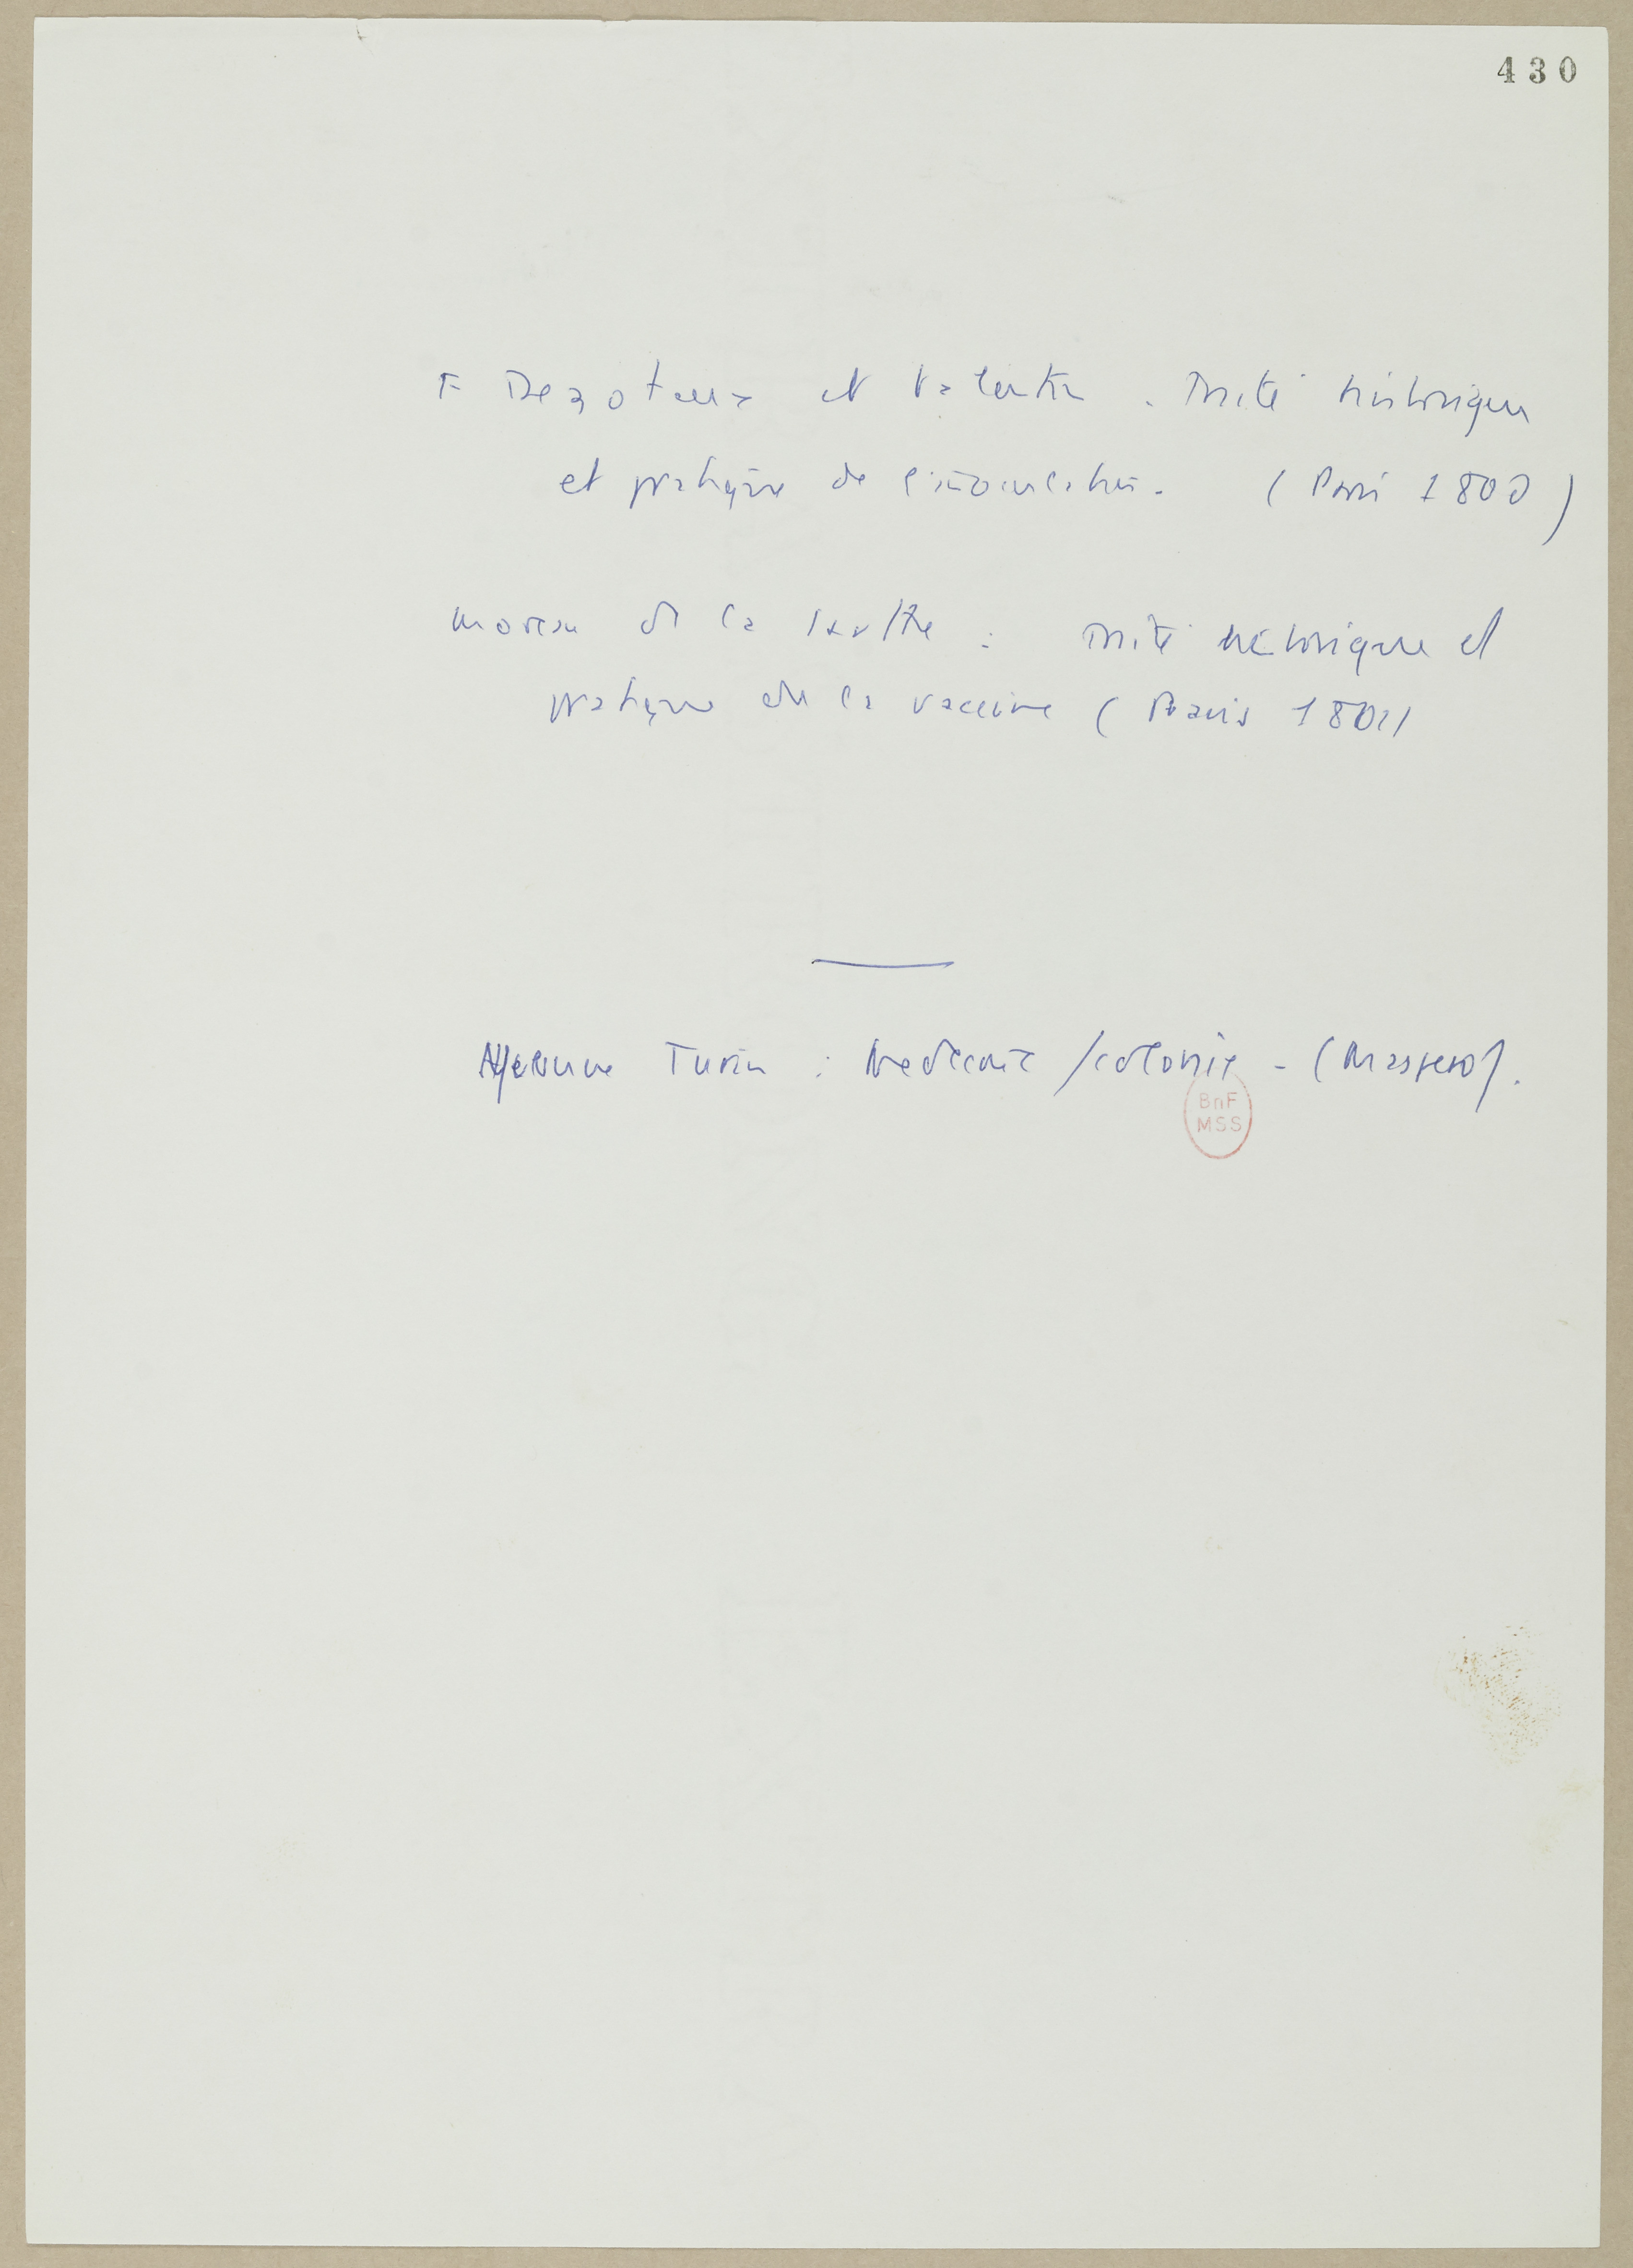 430
F Dezoteux et Valentin. Traité historique
et pratique de l'inoculation. (Paris 1800)
Moreau de la Sarthe : Traité historique et
pratique de la vaccine (Paris 1801)
Turin : Medecine / colonie - (Maspero).
BnF
MSS